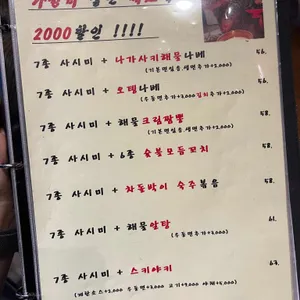 2000할인 !!!!
7종 사시미 + 나가사키해물나베 56.
(기본면있음 생면추가+2,000)
7종 사시미 + 오뎅나베 56.
(우동면추가+3,000 김치추가+2,000)
7종 사시미 + 해물크림짬뽕 58.
(기본면있음 생면추가+2,000)
7종 사시미 + 6종 숯불모듬꼬치 58.
7종 사시미 + 차돌박이 숙주볶음 58.
7종 사시미 + 해물알탕 61.
(우동면추가+3,000)
7종 사시미 + 스키야키 63.
(계란소스+2,000 우동면+3,000 고기+9,000 야채+5,000)